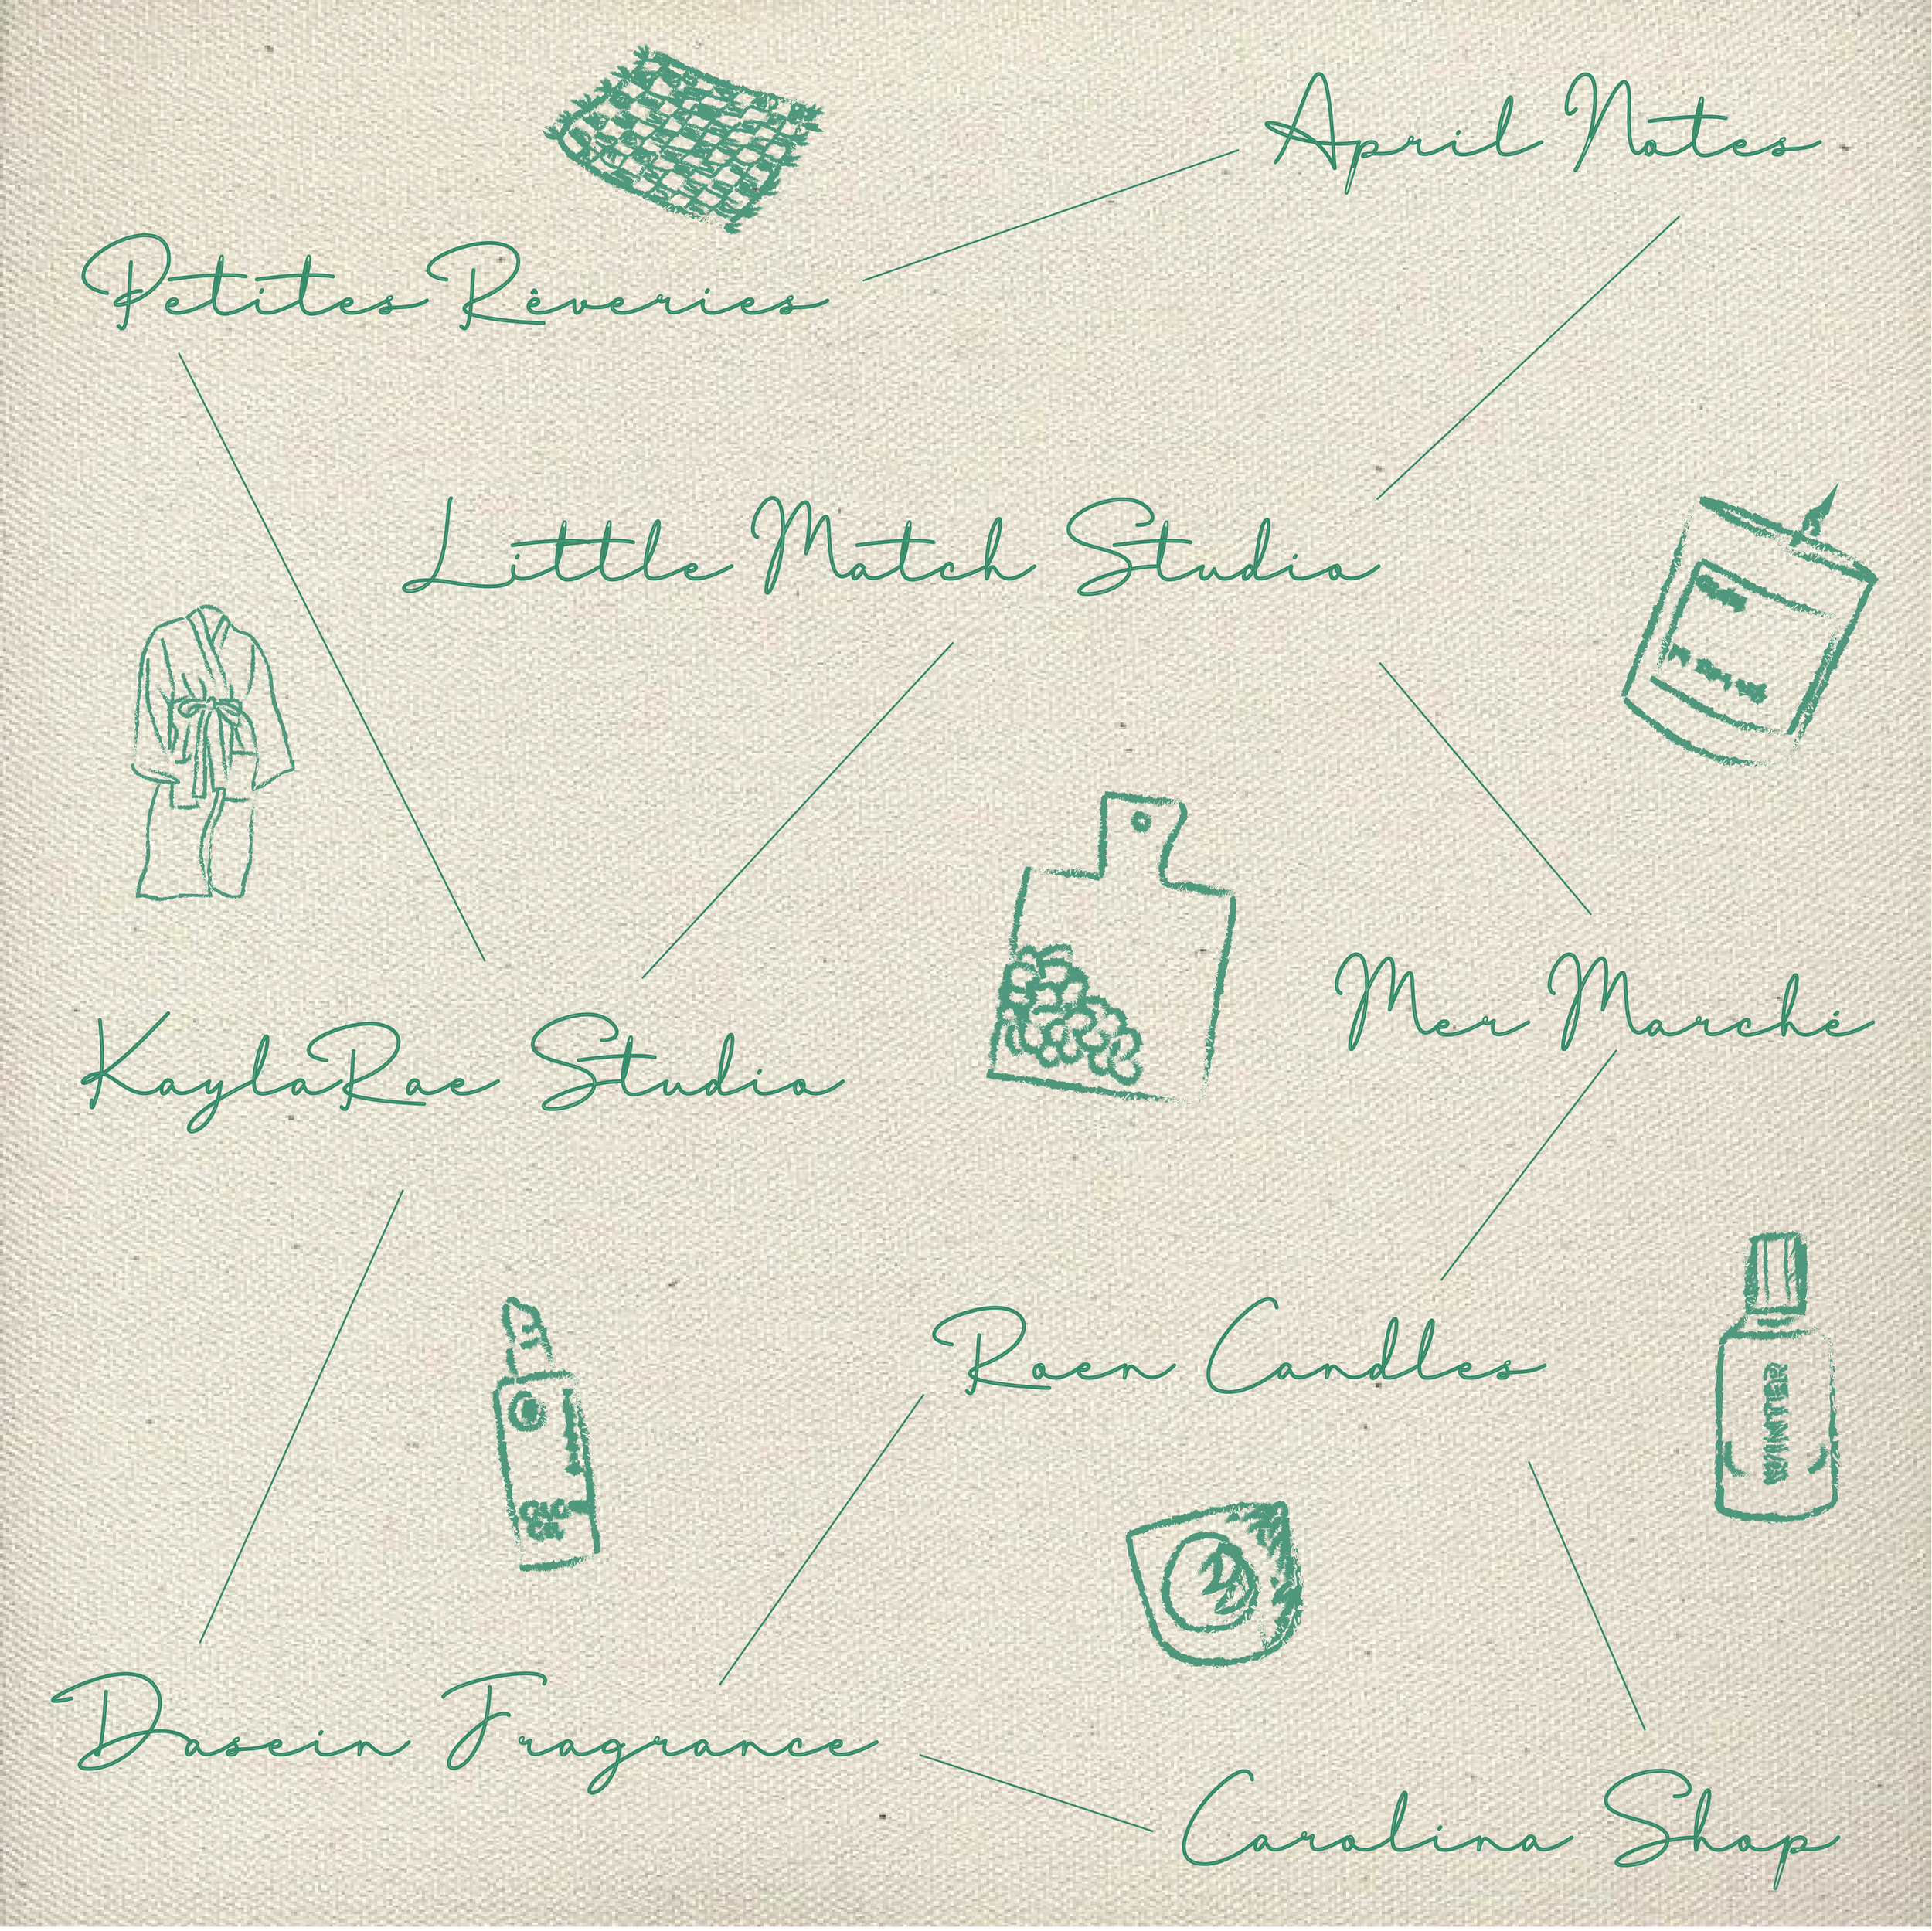 April Notes
Petites Rêveries
Little Match Studio
Mer Marché
KaylaRae Studio
Roen Candles
WINTER
Dasein Fragrance
Carolina Shop